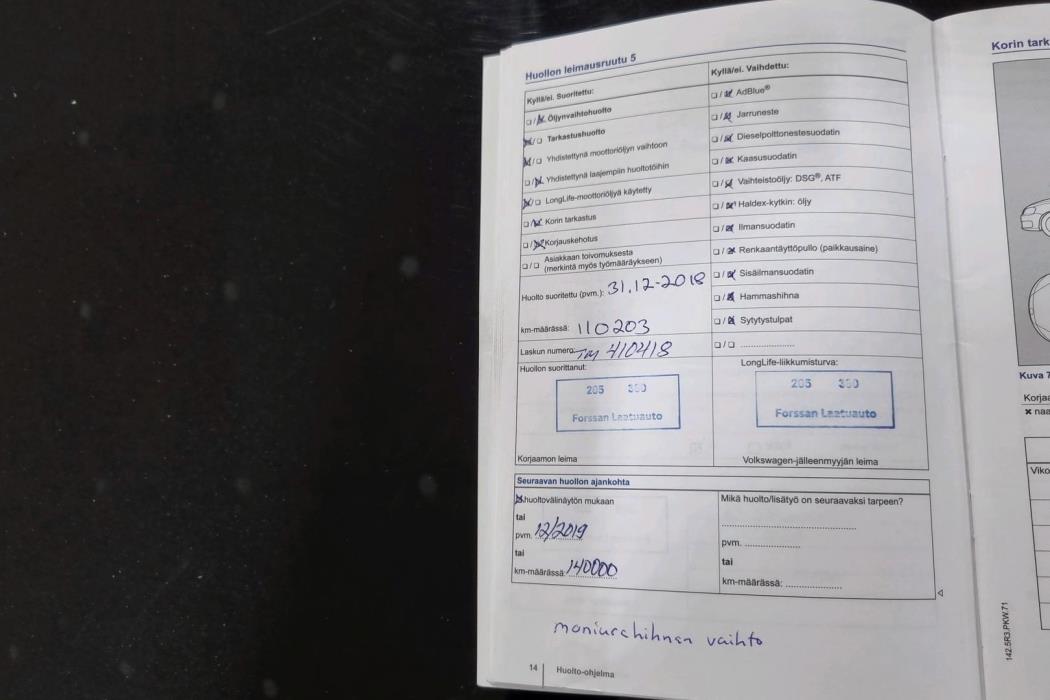 Huollon leimausruutu 5
Kyllä/ei. Suoritettu:
❏/❏ Öljynvaihtohuolto
❏/❏ Tarkastushuolto
❏/❏ Yhdistettynä moottoriöljyn vaihtoon
❏/❏ Yhdistettynä laajempiin huoltotöihin
❏/❏ LongLife-moottoriöljyä käytetty
❏/❏ Korin tarkastus
❏/❏ Korjauskehotus
❏/❏ Asiakkaan toivomuksesta
(merkintä myös työmääräykseen)
Huolto suoritettu (pvm.): 31.12-2018
km-määrässä: 110203
Laskun numero: 410418
Huollon suorittanut:
205 350
Forssan Laatuauto
Korjaamon leima
Kyllä/ei. Vaihdettu:
❏/❏ AdBlue®
❏/❏ Jarruneste
❏/❏ Dieselpolttonestesuodatin
❏/❏ Kaasusuodatin
❏/❏ Vaihteistoöljy: DSG®, ATF
❏/❏ Haldex-kytkin: öljy
❏/❏ Ilmansuodatin
❏/❏ Renkaantäyttöpullo (paikkausaine)
❏/❏ Sisäilmansuodatin
❏/❏ Hammashihna
❏/❏ Sytytystulpat
❏/❏ ....................
LongLife-liikkumisturva:
205 350
Forssan Laatuauto
Volkswagen-jälleenmyyjän leima
Seuraavan huollon ajankohta
huoltovälinäytön mukaan
tai
pvm. 12/2019
tai
km-määrässä: 140000
Mikä huolto/lisätyö on seuraavaksi tarpeen?
pvm. ....................
tai
km-määrässä: ....................
moniurahihnan vaihto
14 Huolto-ohjelma
142.5R3.PKW.71
Korin tark
Kuva 7
Korjaa
✖ naa
Viko